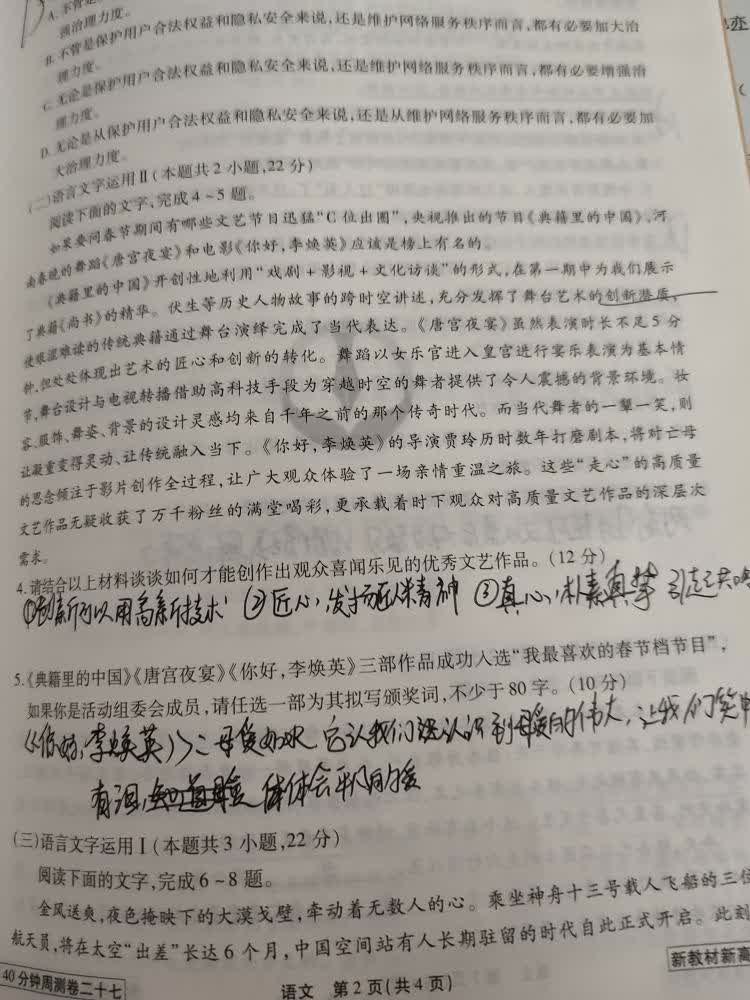 A. 不管是
强治理力度。
B. 不管是保护用户合法权益和隐私安全来说,还是维护网络服务秩序而言,都有必要加大治
理力度。
C. 无论是保护用户合法权益和隐私安全来说,还是维护网络服务秩序而言,都有必要增强治
理力度。
D. 无论是从保护用户合法权益和隐私安全来说,还是从维护网络服务秩序而言,都有必要加
大治理力度。
(二)语言文字运用Ⅱ(本题共2小题,22分)
阅读下面的文字,完成4~5题。
如果要问春节期间有哪些文艺节目迅猛“C位出圈”,央视推出的节目《典籍里的中国》,河
南春晚的舞蹈《唐宫夜宴》和电影《你好,李焕英》应该是榜上有名的。
《典籍里的中国》开创性地利用“戏剧+影视+文化访谈”的形式,在第一期中为我们展示
了典籍《尚书》的精华。伏生等历史人物故事的跨时空讲述,充分发挥了舞台艺术的创新潜质,
使艰涩难读的传统典籍通过舞台演绎完成了当代表达。《唐宫夜宴》虽然表演时长不足5分
钟,但处处体现出艺术的匠心和创新的转化。舞蹈以女乐官进入皇宫进行宴乐表演为基本情
节,舞台设计与电视转播借助高科技手段为穿越时空的舞者提供了令人震撼的背景环境。妆
容、服饰、舞姿、背景的设计灵感均来自千年之前的那个传奇时代。而当代舞者的一颦一笑,则
让凝重变得灵动、让传统融入当下。《你好,李焕英》的导演贾玲历时数年打磨剧本,将对亡母
的思念倾注于影片创作全过程,让广大观众体验了一场亲情重温之旅。这些“走心”的高质量
文艺作品无疑收获了万千粉丝的满堂喝彩,更承载着时下观众对高质量文艺作品的深层次
需求。
4. 请结合以上材料谈谈如何才能创作出观众喜闻乐见的优秀文艺作品。(12分)
①创新可以用高新技术 ②匠心,发扬匠人精神 ③真心,朴素真挚 引起共鸣
5. 《典籍里的中国》《唐宫夜宴》《你好,李焕英》三部作品成功入选“我最喜欢的春节档节目”,
如果你是活动组委会成员,请任选一部为其拟写颁奖词,不少于80字。(10分)
《你好,李焕英》:母爱如水 它让我们认识到母爱的伟大,让我们笑中
有泪, 体会平凡的爱
(三)语言文字运用Ⅰ(本题共3小题,22分)
阅读下面的文字,完成6~8题。
金风送爽,夜色掩映下的大漠戈壁,牵动着无数人的心。乘坐神舟十三号载人飞船的三位
航天员,将在太空“出差”长达6个月,中国空间站有人长期驻留的时代自此正式开启。此刻
40分钟周测卷二十七
语文 第2页(共4页)
新教材新高